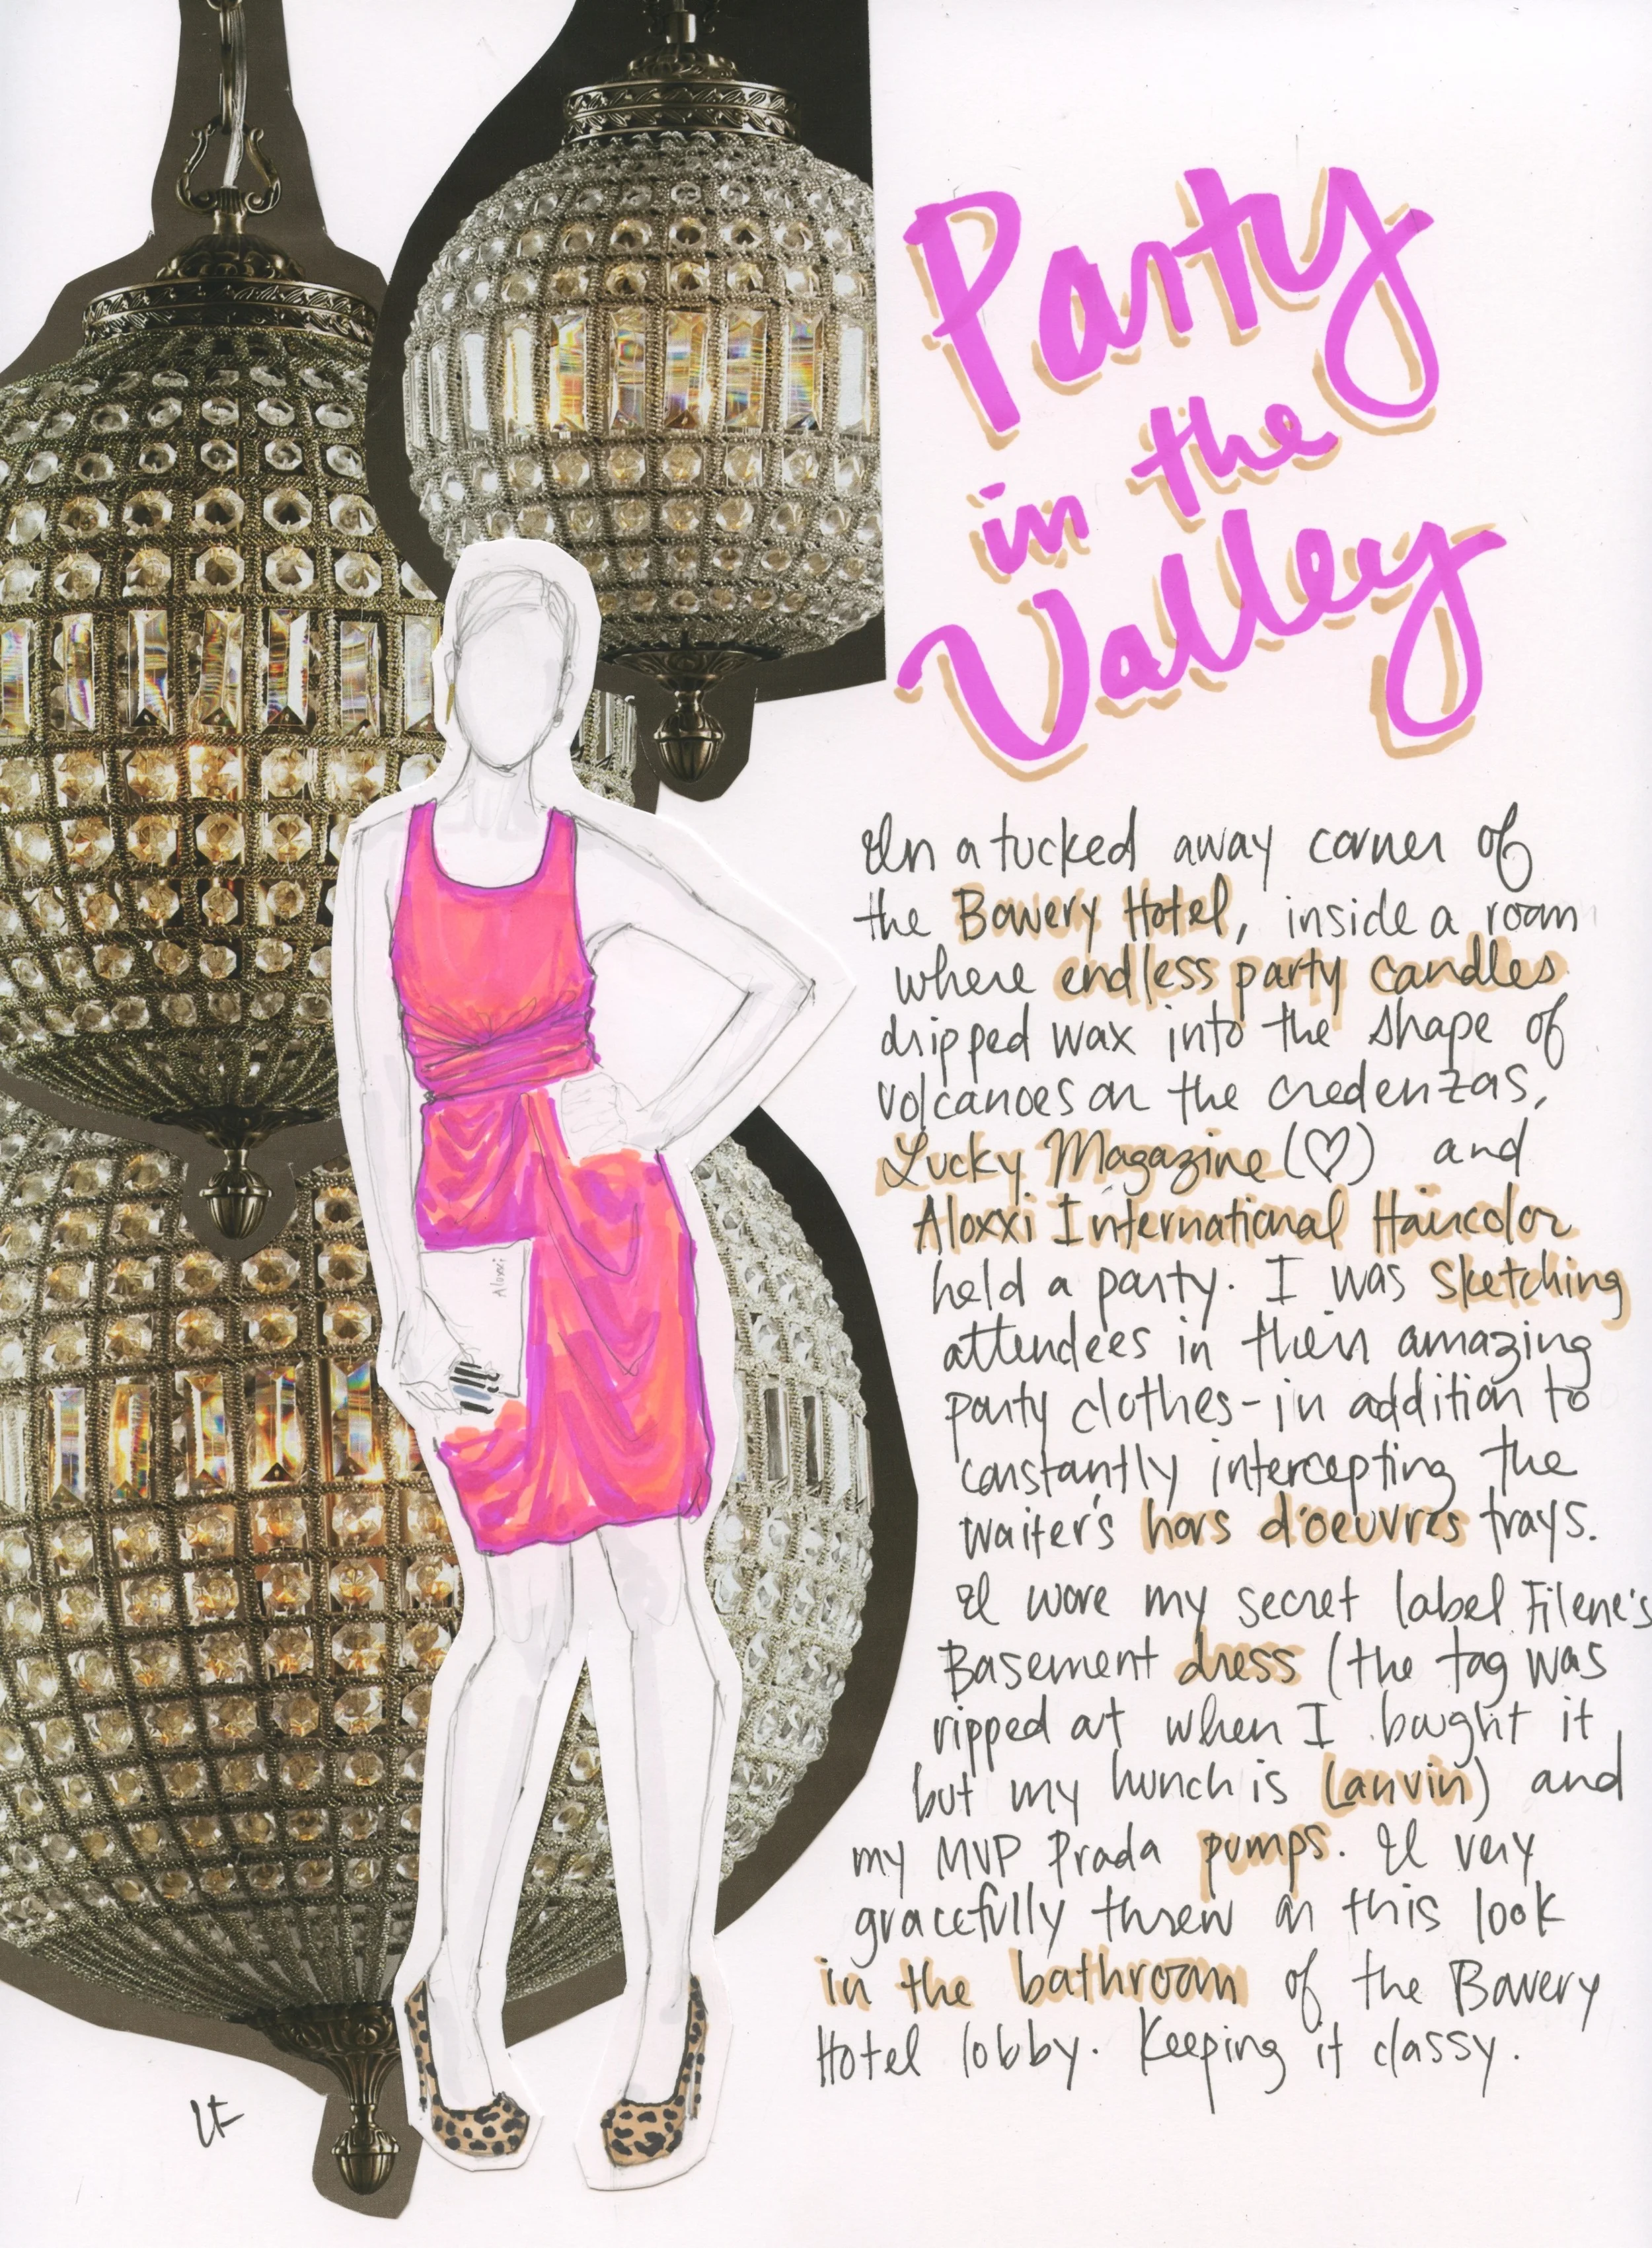 Party
in the
Valley
In a tucked away corner of
the Bowery Hotel, inside a room
where endless party candles
dripped wax into the shape of
volcanoes on the credenzas,
Lucky Magazine (♡) and
Aloxxi International Haircolor
held a party. I was sketching
attendees in their amazing
party clothes-in addition to
constantly intercepting the
waiter's hors d'oeuvres trays.
I wore my secret label Filene's
Basement dress (the tag was
ripped at when I bought it
but my hunch is Lanvin) and
my MVP Prada pumps. I very
gracefully threw on this look
in the bathroom of the Bowery
Hotel lobby. Keeping it classy.
Aloxxi
LF